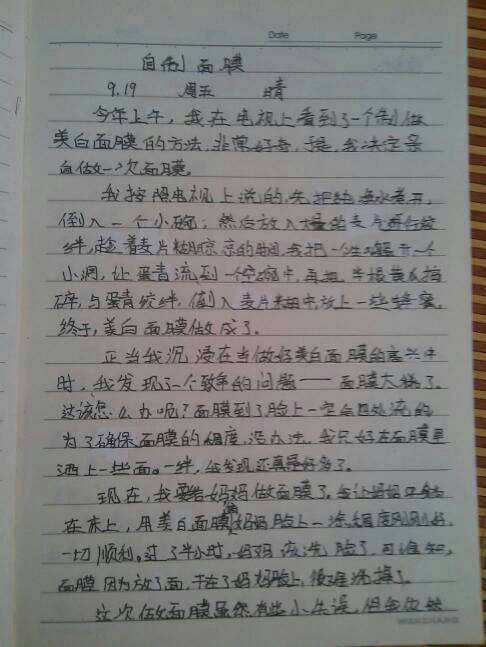 Date Page
自制面膜
9.19 周五 晴
今年上午，我在电视上看到了一个制做
美白面膜的方法，非常好奇，于是，我决定亲
自做一次面膜。
我按照电视上说的，先把纯净水煮开，
倒入一个小碗；然后放入适量的麦片进行绞
拌，趁着麦片糊晾凉的期间，我把一个生鸡蛋开一个
小洞，让蛋青流到一个空碗中，再把半根黄瓜捣
碎，与蛋青绞拌，倒入麦片糊中放上一些蜂蜜，
终于，美白面膜做成了。
正当我沉浸在当做好美白面膜的高兴中
时，我发现了一个致命的问题——面膜太稀了。
这该怎么办呢？面膜到了脸上一定会四处流的，
为了确保面膜的稠度，没办法，我只好在面膜里
洒上一些面。一绊，会发现还真是好多了。
现在，我要给妈妈做面膜了。我让妈妈
在床上，用美白面膜往妈妈脸上一涂，稠度刚刚好，
一切顺利。过了半小时，妈妈该洗脸了，可谁知，
面膜因为放了面，干在了妈妈脸上，很难洗掉了。
这次做面膜虽然有些小失误，但我仍然